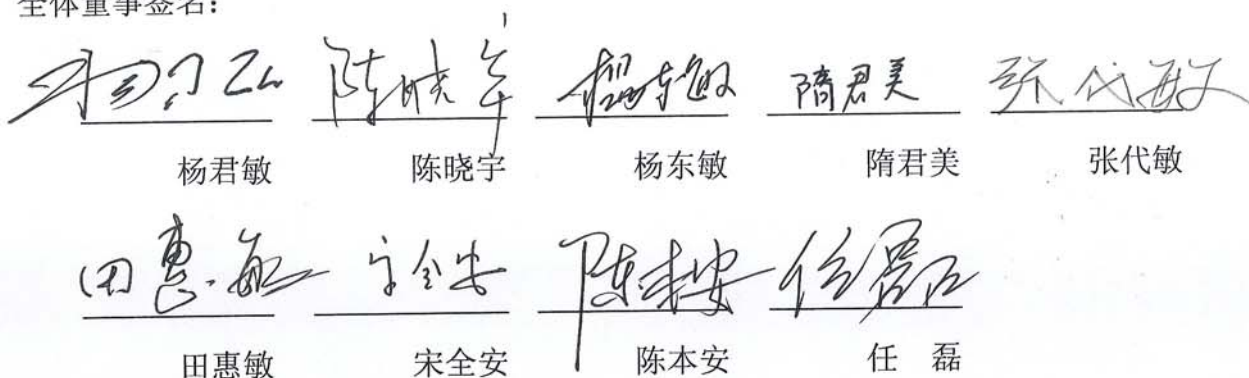 全体董事签名：
杨君敏 陈晓宇 杨东敏 隋君美 张代敏
陈晓宇 杨东敏 隋君美 张代敏
杨君敏 陈晓宇 杨东敏 隋君美 张代敏
田惠敏 宋全安 陈本安 任磊
田惠敏 宋全安 陈本安 任 磊